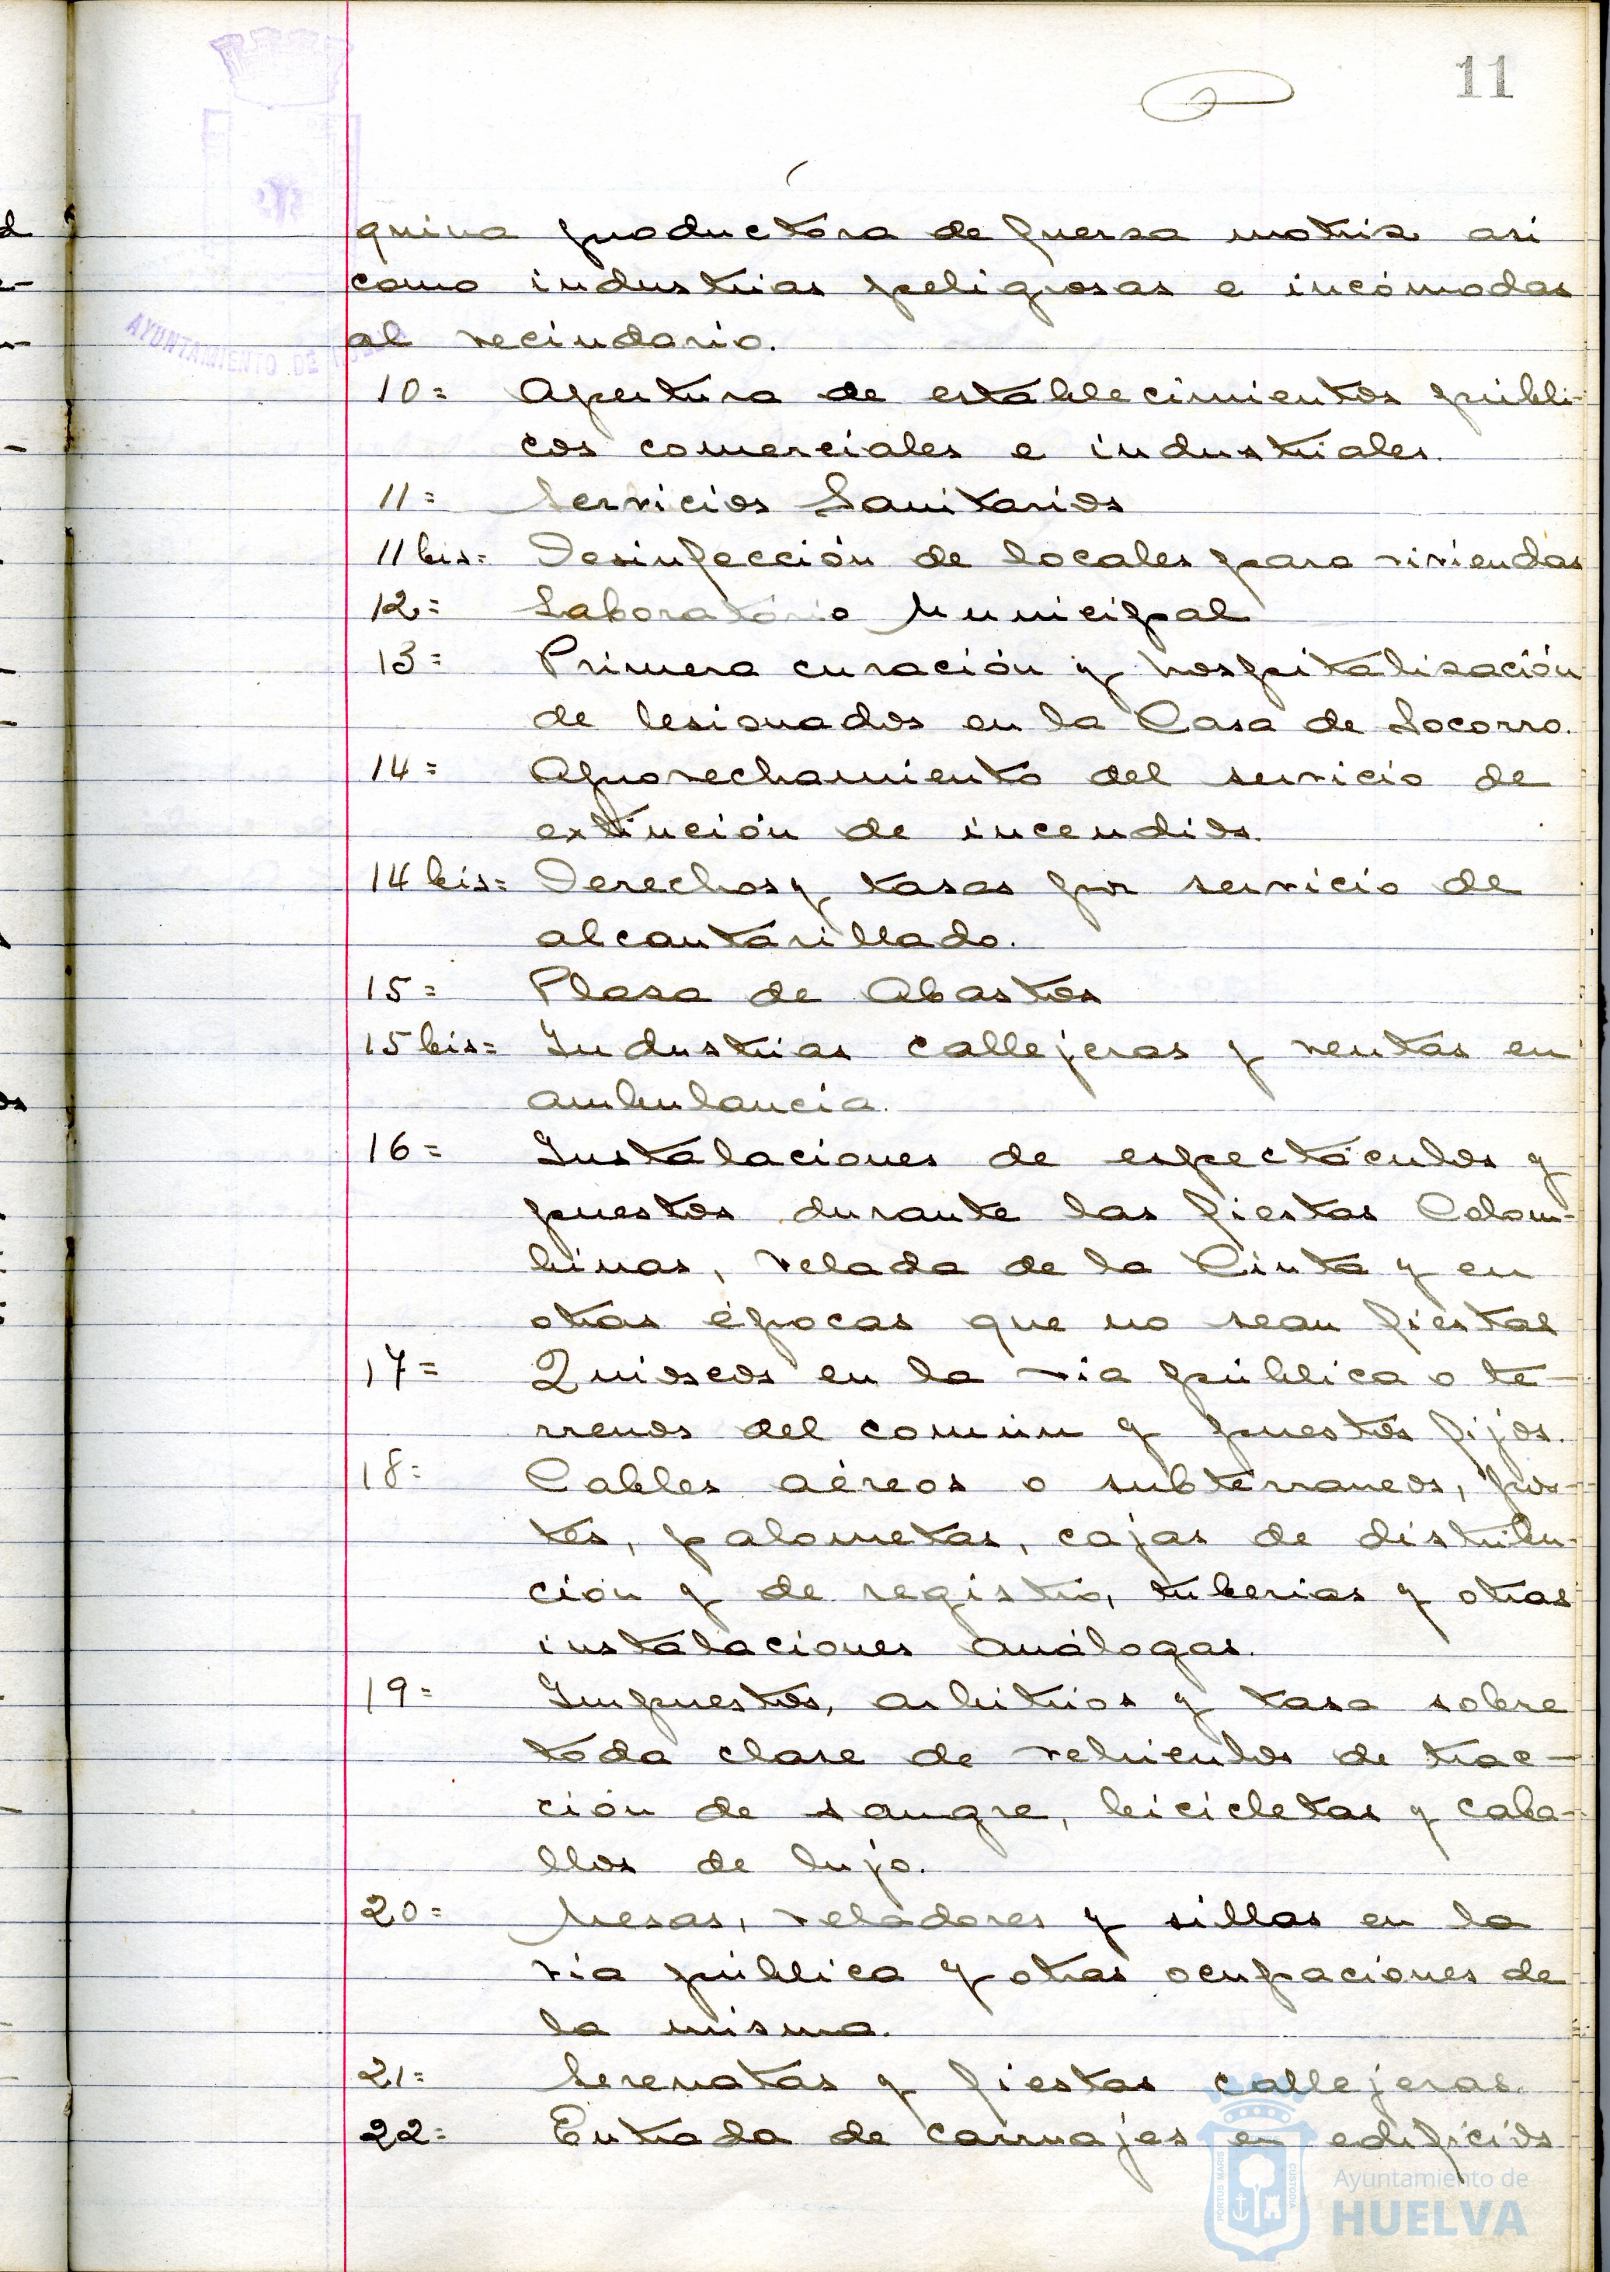 11
quina productora de fuerza motriz asi
como industrias peligrosas e incómodas
al vecindario.
10= Apertura de establecimientos públi-
cos comerciales e industriales.
11= Servicios Sanitarios
11 bis= Desinfección de locales para viviendas
12= Laboratorio Municipal
13= Primera curación y hospitalización
de lesionados en la Casa de Socorro.
14= Aprovechamiento del servicio de
extinción de incendios.
14 bis= Derechos y tasas por servicio de
alcantarillado.
15= Plaza de Abastos
15 bis= Industrias callejeras y ventas en
ambulancia.
16= Instalaciones de espectáculos y
puestos durante las fiestas Colom-
binas, Velada de la Cinta y en
otras épocas que no sean fiestas
17= Quioscos en la via pública o te-
rrenos del común y puestos fijos.
18= Cables aéreos o subterraneos, pos-
tes, palometas, cajas de distribu-
ción y de registro, tuberias y otras
instalaciones análogas.
19= Impuestos, arbitrios y tasa sobre
toda clase de vehiculos de trac-
ción de sangre, bicicletas y caba-
llos de lujo.
20= Mesas, veladores y sillas en la
via pública y otras ocupaciones de
la misma.
21= Serenatas y fiestas callejeras.
22= Entrada de carruajes en edificios
AYUNTAMIENTO DE HUELVA
PORTUS MARIS
CUSTODIA
Ayuntamiento de
HUELVA